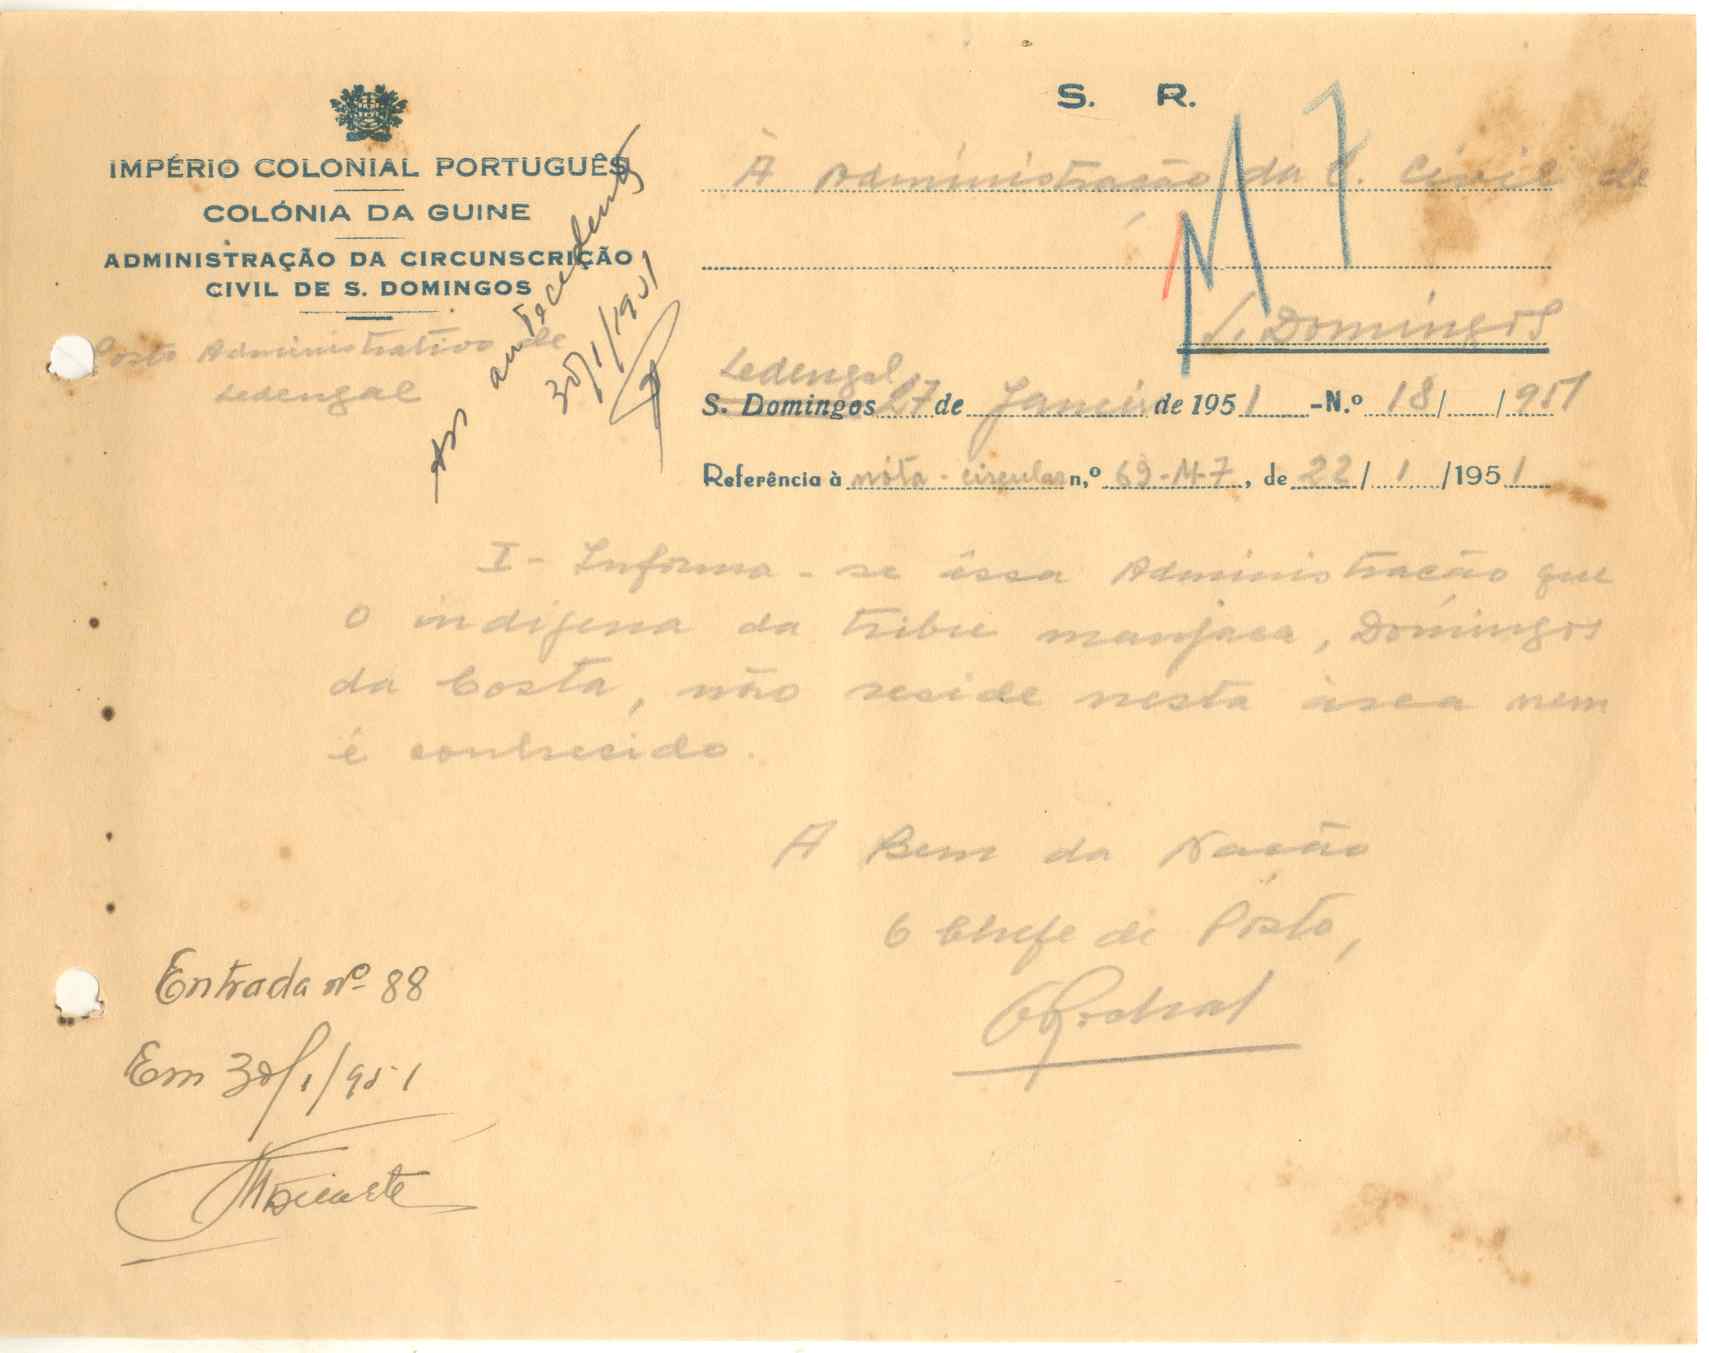 IMPÉRIO COLONIAL PORTUGUÊS
COLÓNIA DA GUINE
ADMINISTRAÇÃO DA CIRCUNSCRIÇÃO
CIVIL DE S. DOMINGOS
Posto Administrativo de
Sedengal
Aos antecedentes
30/1/1951
S. R.
M 7
À Administração da C. Civil de
S. Domingos
Sedengal,
S. Domingos 27 de Janeiro de 1951 -N.º 18/ /951
Referência à nóta-circular n,º 69-M-7, de 22/1/1951
I - Informa-se éssa Administracão que
o indígena da tribu manjaca, Domingos
da Costa, não reside nesta área nem
é conhecido.
A Bem da Nacão
O Chefe de Pôsto,
Entrada nº 88
Em 30/1/951